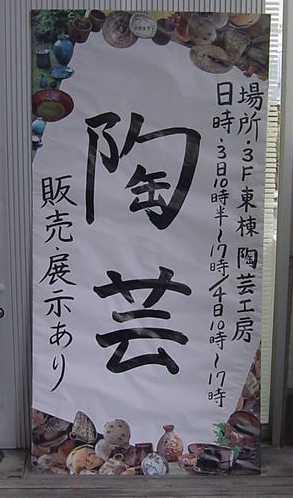 場所・3F東棟陶芸工房
日時・3日10時半〜17時/4日10時〜17時
陶芸
販売・展示あり